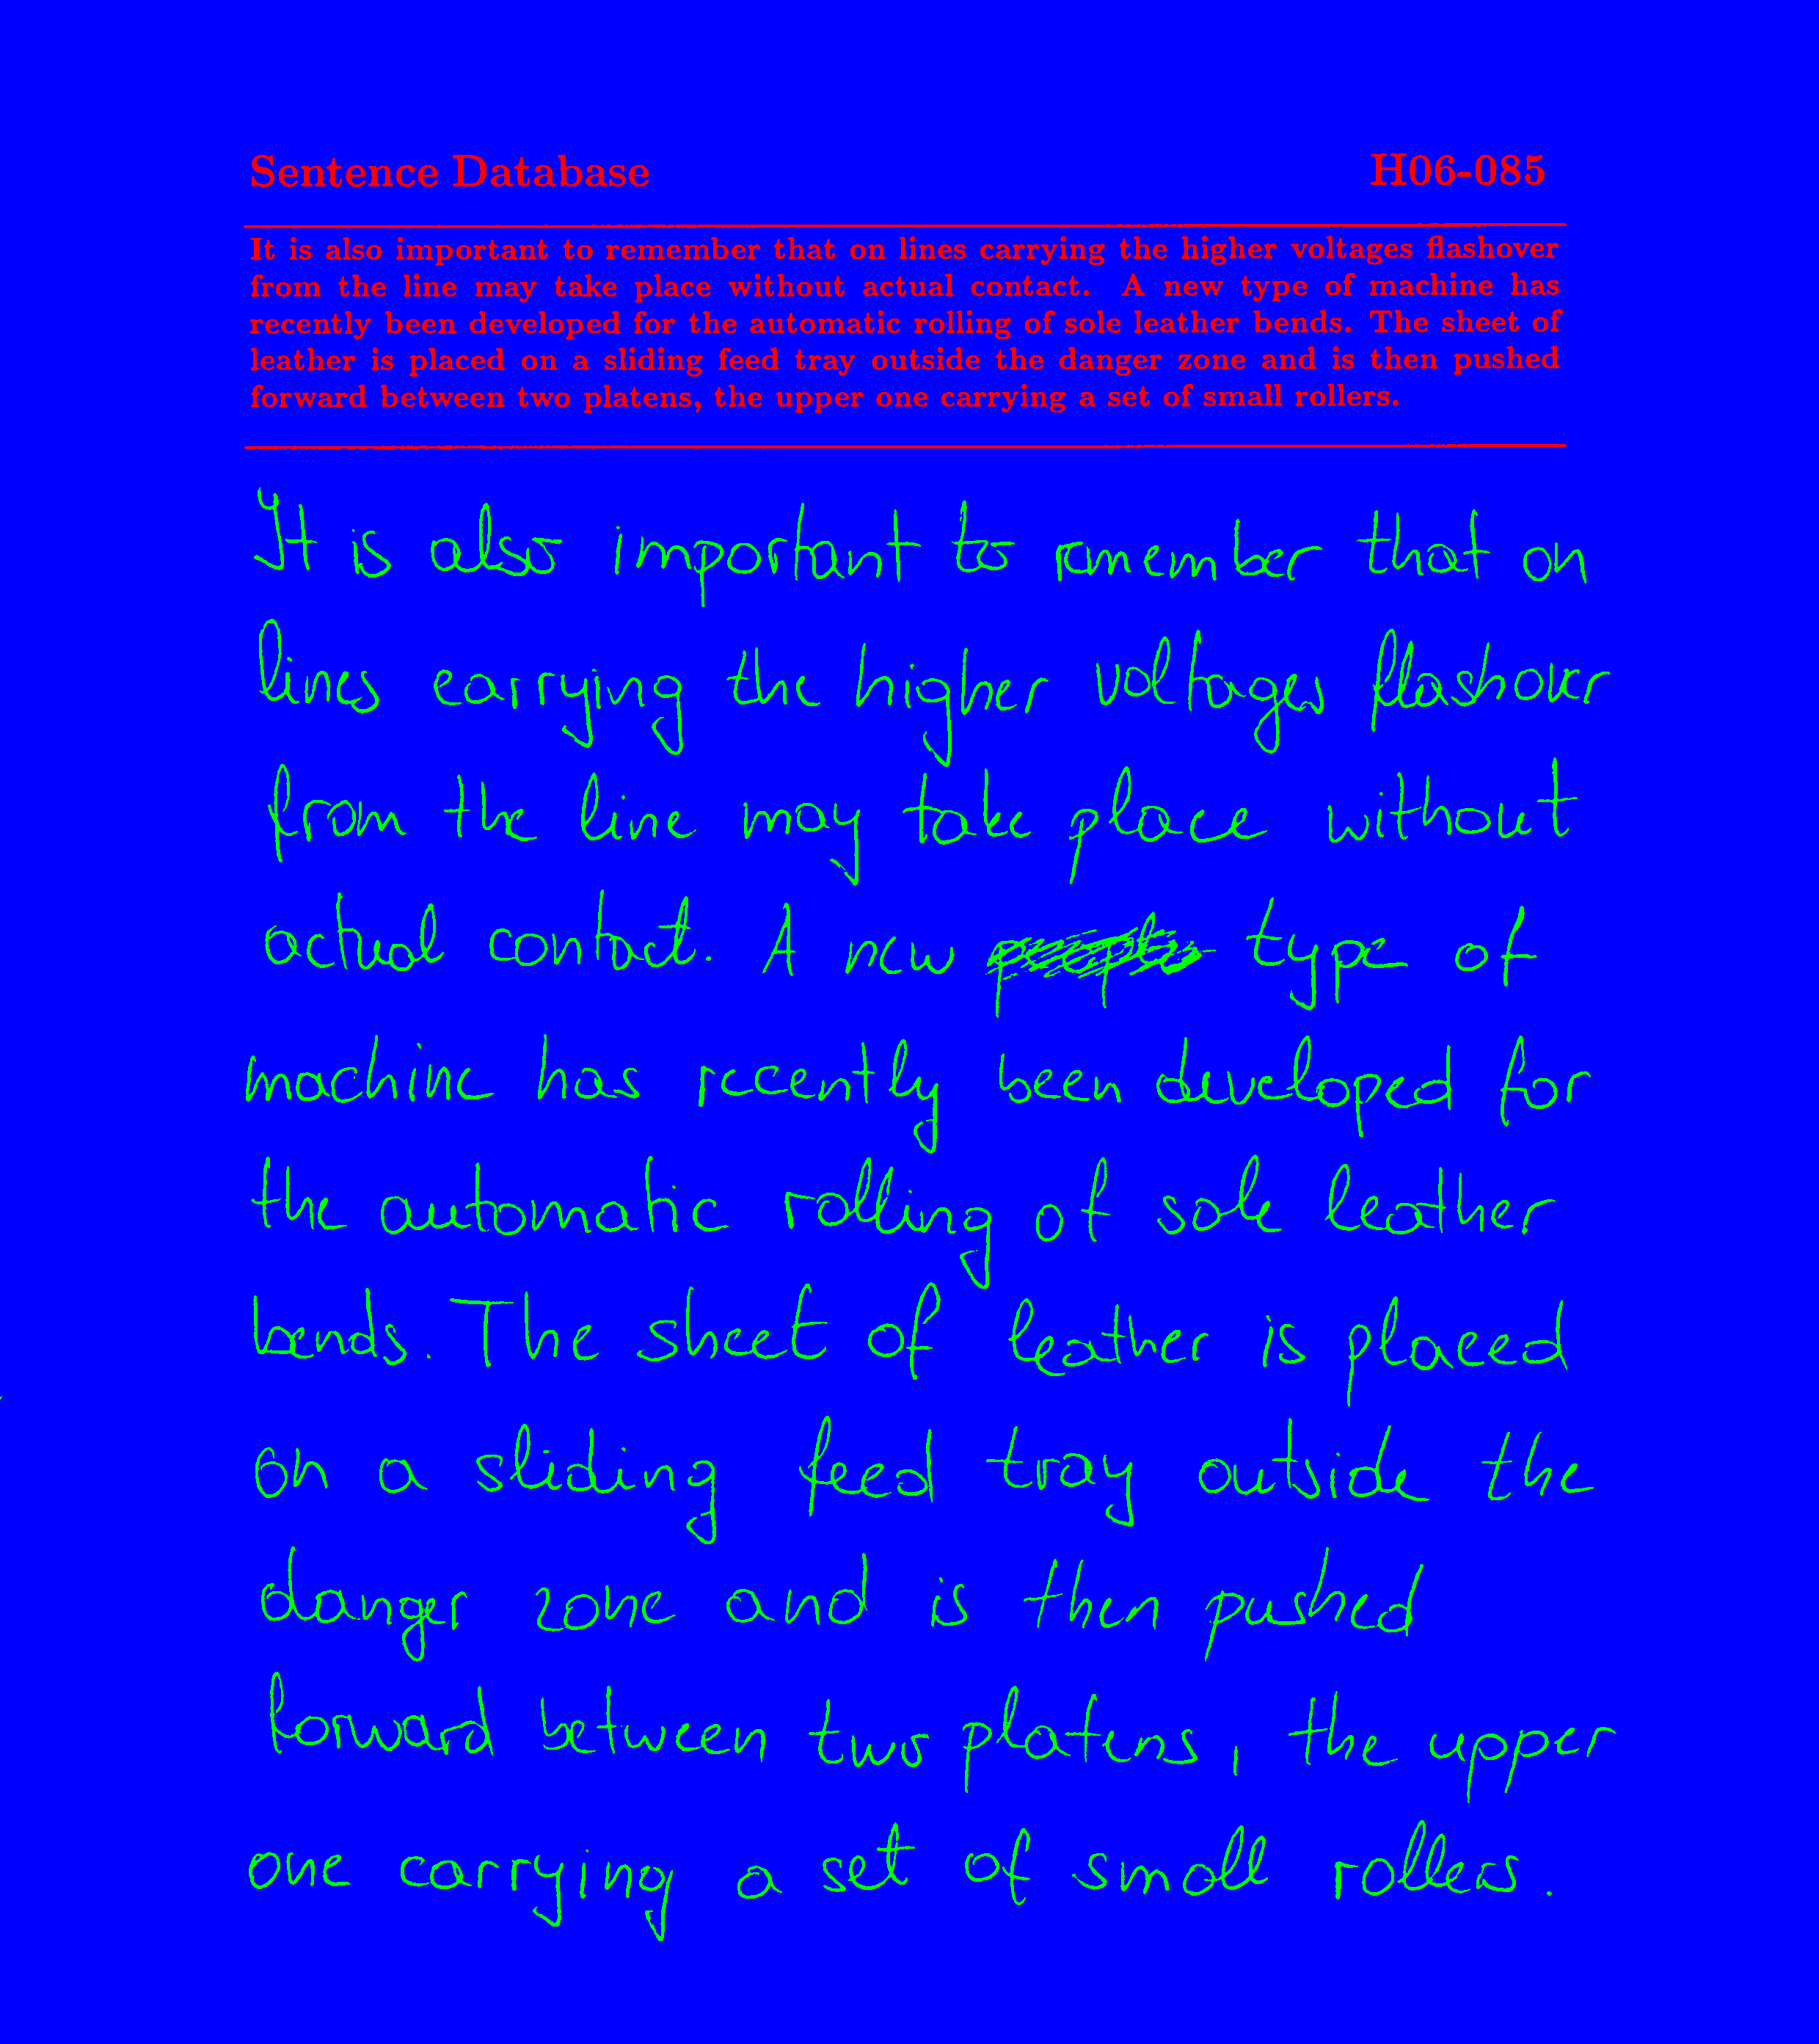 Sentence Database H06-085
It is also important to remember that on lines carrying the higher voltages flashover
from the line may take place without actual contact. A new type of machine has
recently been developed for the automatic rolling of sole leather bends. The sheet of
leather is placed on a sliding feed tray outside the danger zone and is then pushed
forward between two platens, the upper one carrying a set of small rollers.
It is also important to remember that on
lines carrying the higher voltages flashover
from the line may take place without
actual contact. A new type of
machine has recently been developed for
the automatic rolling of sole leather
bends. The sheet of leather is placed
on a sliding feed tray outside the
danger zone and is then pushed
forward between two platens, the upper
one carrying a set of small rollers.